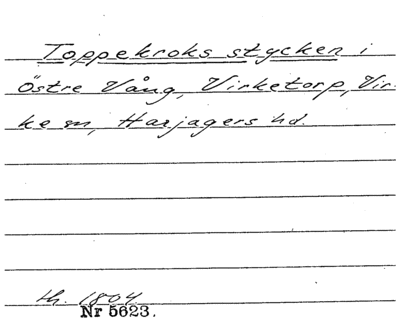 Toppekroks stycken i
östre Vång, Virketorp, Vir-
ke sn, Harjagers hd.
th. 1804
Nr 5623.